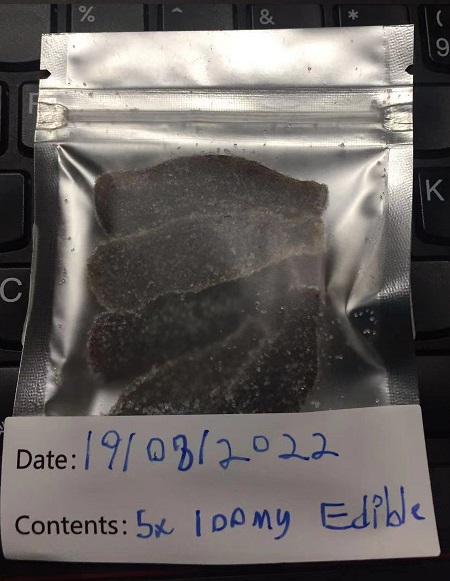 % ^ & * (
9
K
C
Date: 19/08/2022
Contents: 5x 100mg Edible